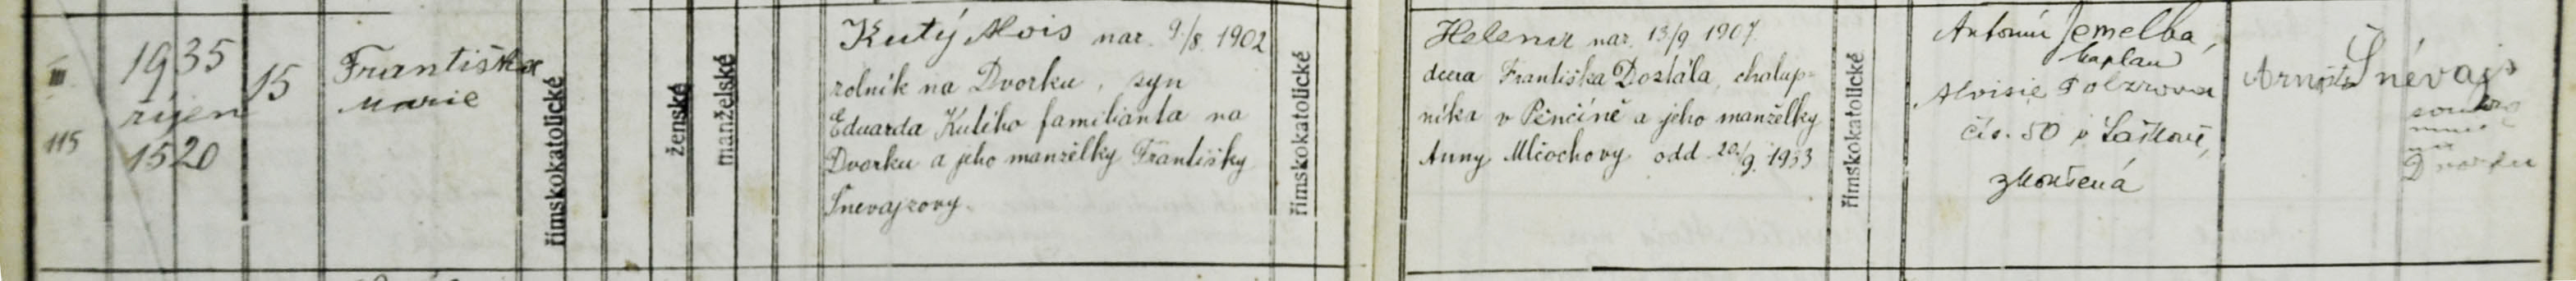 III.
115
1935
říjen
15 20
15
Františka
Marie
římskokatolické
ženské
manželské
Kutý Alois nar. 9/8. 1902
rolník na Dvorku, syn
Eduarda Kutého familianta na
Dvorku a jeho manželky Františky
Šnevajsovy.
římskokatolické
Helena nar. 13/9 1907.
dcera Františka Dostála, chalup-
níka v Pěnčíně a jeho manželky
Anny Mlčochovy odd. 20/9. 1933
římskokatolické
Antonín Jemelba,
kaplan
Aloisie
čís. 50 v Laškově,
zkoušená
Arnošt Šnévajs
na
Dvorku